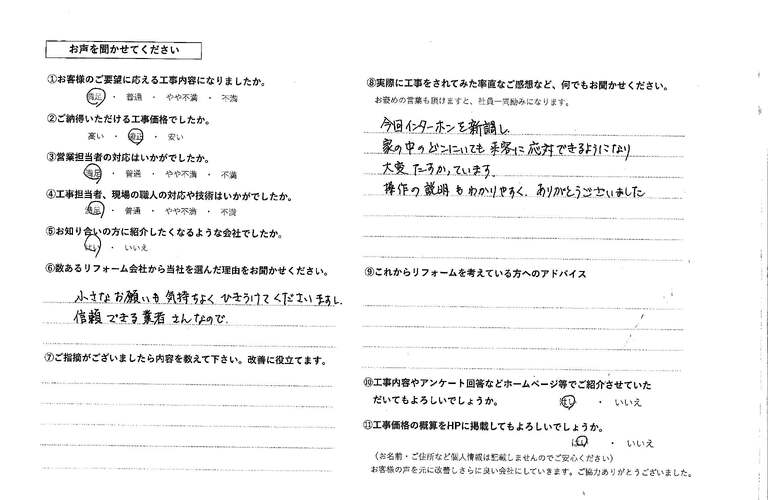 お声を聞かせてください
①お客様のご要望に応える工事内容になりましたか。
満足 ・ 普通 ・ やや不満 ・ 不満
②ご納得いただける工事価格でしたか。
高い ・ 適正 ・ 安い
③営業担当者の対応はいかがでしたか。
満足 ・ 普通 ・ やや不満 ・ 不満
④工事担当者、現場の職人の対応や技術はいかがでしたか。
満足 ・ 普通 ・ やや不満 ・ 不満
⑤お知り合いの方に紹介したくなるような会社でしたか。
はい ・ いいえ
⑥数あるリフォーム会社から当社を選んだ理由をお聞かせください。
小さなお願いも気持ちよくひきうけてくださいますし、
信頼できる業者さんなので。
⑦ご指摘がございましたら内容を教えて下さい。改善に役立てます。
⑧実際に工事をされてみた率直なご感想など、何でもお聞かせください。
お褒めの言葉も頂けますと、社員一同励みになります。
今回インターホンを新調し、
家の中のどこにいても来客に応対できるようになり
大変たすかっています。
操作の説明もわかりやすく、ありがとうございました
⑨これからリフォームを考えている方へのアドバイス
⑩工事内容やアンケート回答などホームページ等でご紹介させていた
だいてもよろしいでしょうか。 はい ・ いいえ
⑪工事価格の概算をHPに掲載してもよろしいでしょうか。
はい ・ いいえ
（お名前・ご住所など個人情報は記載しませんのでご安心ください）
お客様の声を元に改善しさらに良い会社にしていきます。ご協力ありがとうございました。